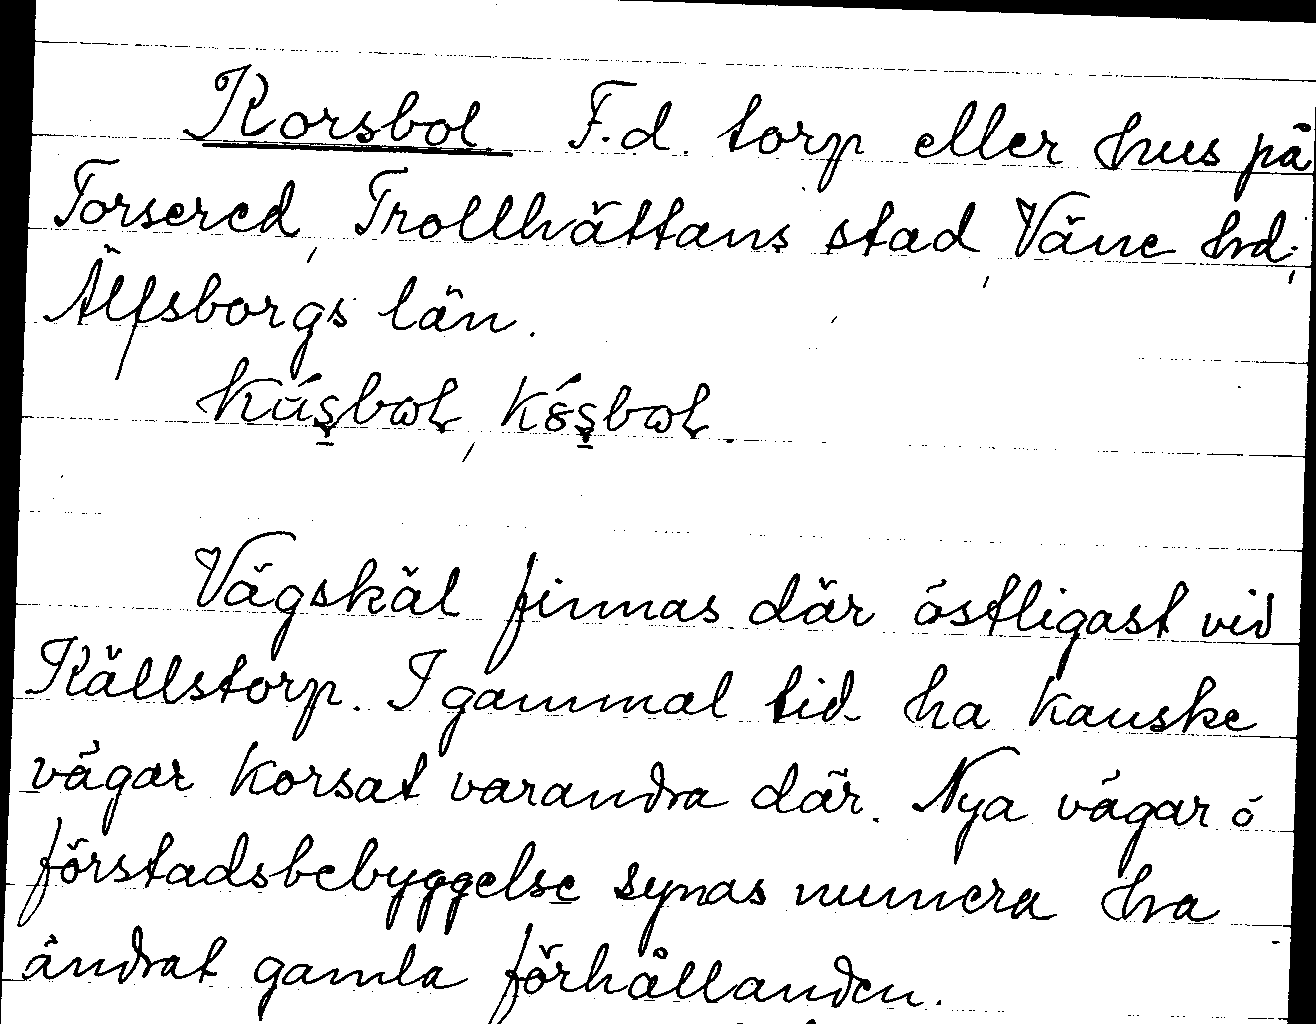 Korsbol. F.d. torp eller hus på
Torsered, Trollhättans stad, Väne hd,
Älfsborgs län.
Vägskäl finnas där östligast vid
Källstorp. I gammal tid ha kanske
vägar korsat varandra där. Nya vägar o
förstadsbebyggelse synas numera ha
ändrat gamla förhållanden.